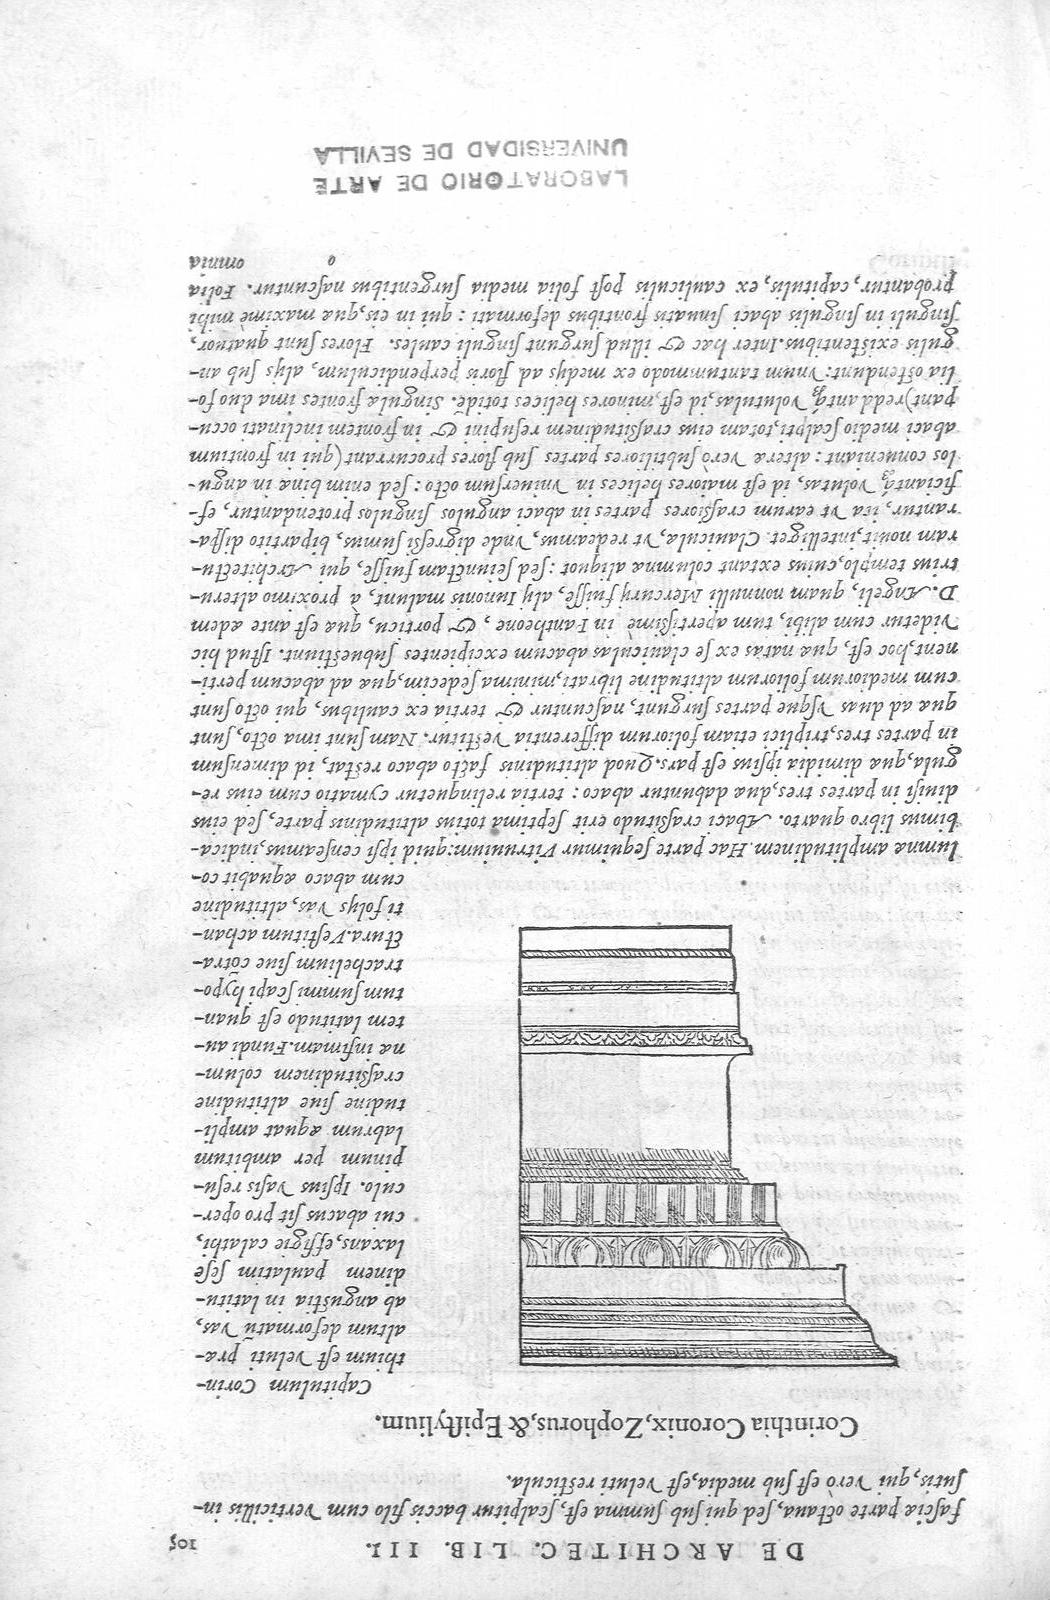 DE ARCHITEC. LIB. III. 105
faſciæ parte octaua, ſed qui ſub ſumma eſt, ſcalpitur baccis filo cum verticillis in-
ſutis, qui verò eſt ſub media, eſt veluti reſticula.
Corinthia Coronix, Zophorus, & Epiſtylium.
Capitulum Corin-
thium eſt veluti præ-
altum deformatũ vas,
ab anguſtia in latitu-
dinem paulatim ſeſe
laxans, effigie calathi,
cui abacus ſit pro oper-
culo. Ipſius vaſis reſu-
pinum per ambitum
labrum æquat ampli-
tudine ſiue altitudine
craſſitudinem colum-
næ infimam. Fundi au-
tem latitudo eſt quan-
tum ſummi ſcapi hypo-
trachelium ſiue cõtra-
ctura. Veſtitum achan-
ti folys vas, altitudine
cum abaco æquabit co-
lumnæ amplitudinem. Hac parte ſequimur Vitruuium: quid ipſi cenſeamus, indica-
bimus libro quarto. Abaci craſſitudo erit ſeptima totius altitudinis parte, ſed eius
diuiſi in partes tres, duæ dabuntur abaco: tertia relinquetur cymatio cum eius re-
gula, quæ dimidia ipſius eſt pars. Quod altitudinis facto abaco reſtat, id dimenſum
in partes tres, triplici etiam foliorum differentia veſtitur. Nam ſunt ima octo, ſunt
quæ ad duas vſque partes ſurgunt, naſcuntur & tertia ex caulibus, qui octo ſunt
cum mediorum foliorum altitudine librati, minima ſedecim, quæ ad abacum perti-
nent, hoc eſt, quæ natas ex ſe clauiculas abacum excipientes ſubueſtiunt. Iſtud hic
videtur cum alibi, tum apertiſſimè in Pantheone, & porticu, quæ eſt ante ædem
D. Angeli, quam nonnulli Mercury fuiſſe, aly Iunonis malunt, à proximo alteru-
trius templo, cuius extant columnæ aliquot: ſed ſeiunctam fuiſſe, qui Architectu-
ram nouit, intelliget. Clauicula, vt redeamus, vnde digreſſi ſumus, bipartito diſpa-
rantur, ita vt earum craſſiores partes in abaci angulos ſingulos protendantur, ef-
ficiantq́; volutas, id eſt maiores helices in vniuerſum octo: ſed enim binæ in angu-
los conueniant: alteræ verò ſubtiliores partes ſub flores procurrant (qui in frontium
abaci medio ſcalpti, totam eius craſſitudinem reſupini & in frontem inclinati occu-
pant) reddantq́; volutulas, id eſt, minores helices totidẽ. Singulæ frontes ima duo fo-
lia oſtendunt: vnum tantummodo ex medys ad floris perpendiculum, alys ſub an-
gulis exiſtentibus. Inter hæc & illud ſurgunt ſinguli caules. Flores ſunt quatuor,
ſinguli in ſingulis abaci ſinuatis frontibus deformati: qui in eis, quæ maximè mihi
probantur, capitulis, ex cauliculis poſt folia media ſurgentibus naſcuntur. Folia
o omnia
LABORATORIO DE ARTE
UNIVERSIDAD DE SEVILLA